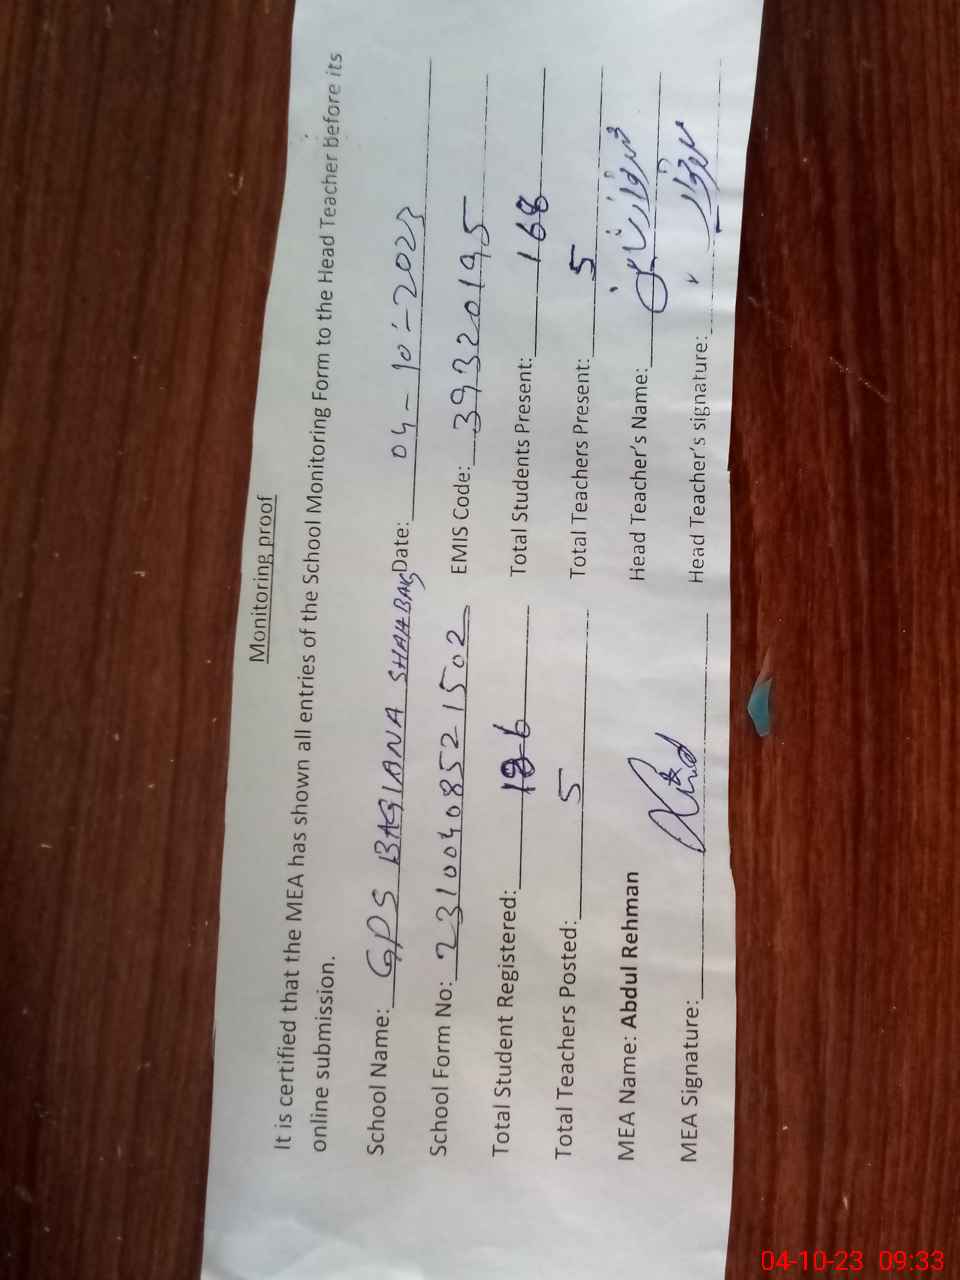 Monitoring proof
It is certified that the MEA has shown all entries of the School Monitoring Form to the Head Teacher before its
online submission.
School Name: GPS BAGIANA SHAHBAG Date: 04-10-2023
School Form No: 23100408521502 EMIS Code: 39320195
Total Student Registered: Total Students Present: 168
Total Teachers Posted: 5 Total Teachers Present: 5
MEA Name: Abdul Rehman Head Teacher's Name:
MEA Signature: Head Teacher's signature:
04-10-23 09:33